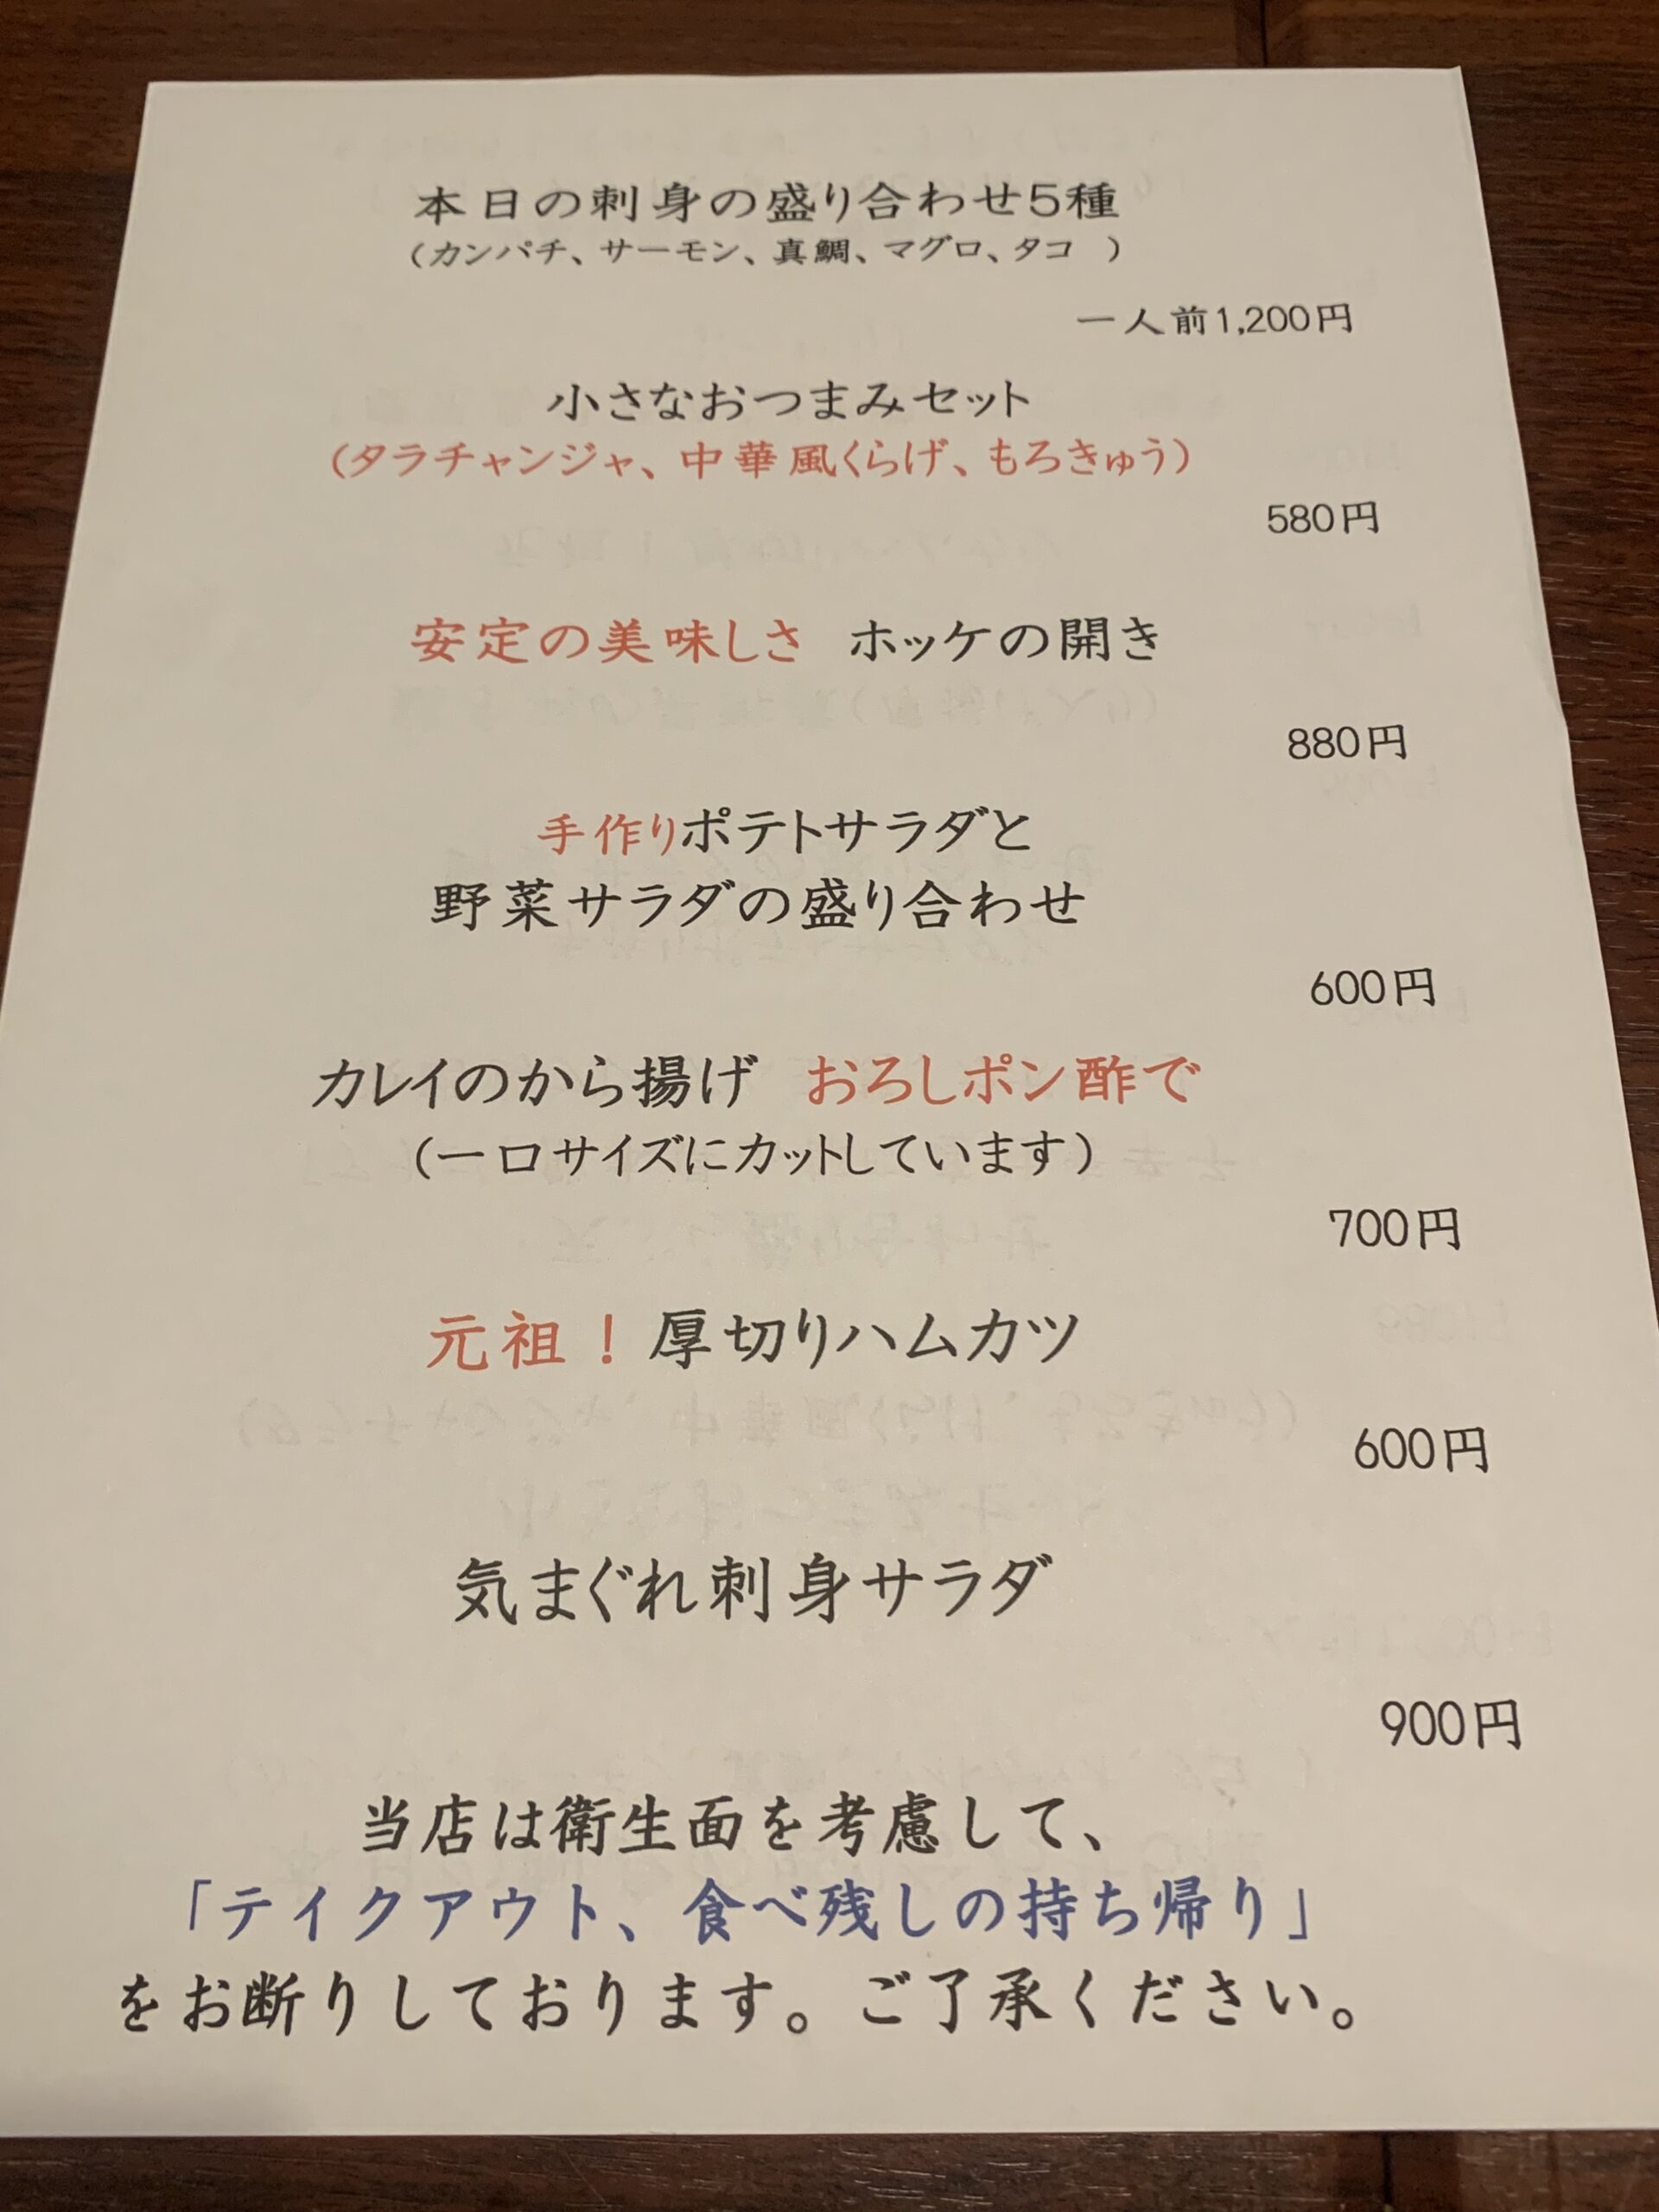 本日の刺身の盛り合わせ5種
（カンパチ、サーモン、真鯛、マグロ、タコ　）
一人前1,200円
小さなおつまみセット
（タラチャンジャ、中華風くらげ、もろきゅう）
580円
安定の美味しさ　ホッケの開き
880円
手作りポテトサラダと
野菜サラダの盛り合わせ
600円
カレイのから揚げ　おろしポン酢で
（一口サイズにカットしています）
700円
元祖！厚切りハムカツ
600円
気まぐれ刺身サラダ
900円
当店は衛生面を考慮して、
「テイクアウト、食べ残しの持ち帰り」
をお断りしております。ご了承ください。